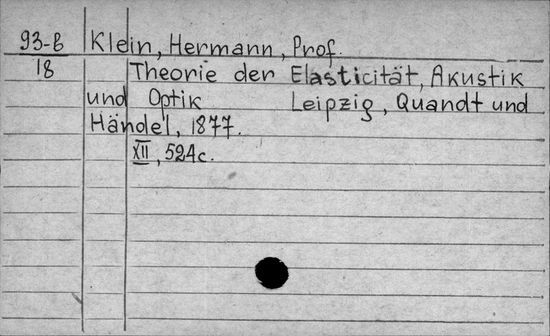 93-B Klein, Hermann, Prof.
18 Theorie der Elasticität, Akustik
und Optik Leipzig, Quandt und
Händel, 1877.
XII, 524c.